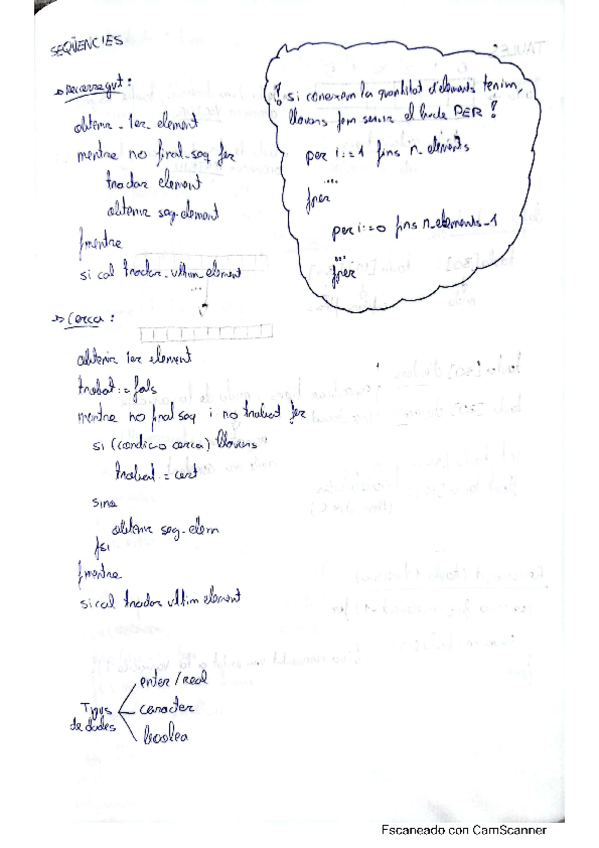 SEQÜENCIES
→ Recorregut:
obtenir_1er_element
mentre no final_seq fer
tractar element
obtenir seg_element
fmentre
si cal tractar_ultim_element
...
! si coneixem la quantitat d'elements tenim,
llavors fem servir el bucle PER !
per i:=1 fins n_elements
....
fper
per i:=0 fins n_elements-1
...
fper
→ Cerca:
obtenir 1er element
trobat:= fals
mentre no final seq i no trobat fer
si (condicio cerca) llavors
trobat = cert
sino
obtenir seg_elem
fsi
fmentre
si cal tractar ultim element
Tipus
de dades
enter/real
caracter
boolea
Escaneado con CamScanner